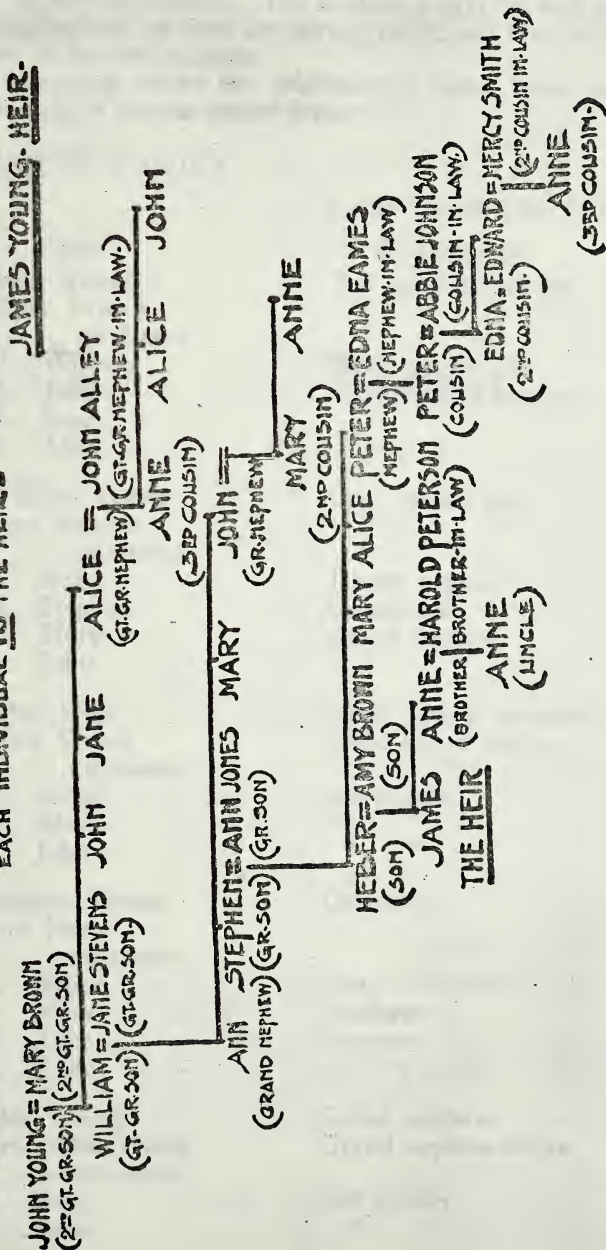 EACH INDIVIDUAL TO THE HEIRS
JAMES YOUNG. HEIR.
JOHN YOUNG=MARY BROWN
(2ND GT.GR.SON) (2ND GT.GR.SON)
WILLIAM=JANE STEVENS JOHN JANE ALICE = JOHN ALLEY
(GT-GR.SON) (GT.GR.SON.) (GT.GR.NEPHEW) (GT.GR.NEPHEW-IN-LAW.)
ANNE ALICE JOHN
(3EP COUSIN)
ANN STEPHEN=ANN JONES MARY JOHN =
(GRAND NEPHEW) (GR.SON) (GR.SON) (GR.NEPHEW)
MARY ANNE
(2ND COUSIN)
HEBER=AMY BROWN MARY ALICE PETER=EDNA EAMES
(SON) (SON) (NEPHEW) (NEPHEW-IN-LAW)
JAMES ANNE=HAROLD PETERSON PETER=ABBIE JOHNSON
THE HEIR (BROTHER) (BROTHER-IN-LAW) (COUSIN) (COUSIN-IN-LAW.)
ANNE EDNA. EDWARD=MERCY SMITH
(UNCLE) (2ND COUSIN.) (2ND COUSIN IN-LAW)
ANNE
(3EP COUSIN.)